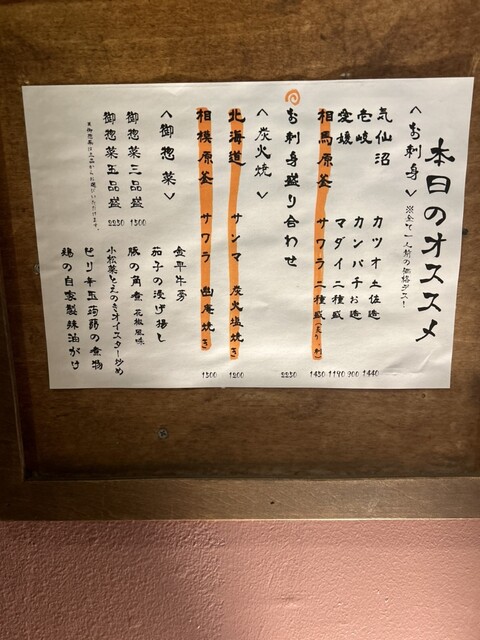 本日のオススメ
〈お刺身〉 ※全て一人前の価格デス!
気仙沼 カツオ 土佐造 1440
壱岐 カンパチお造 900
愛媛 マダイ 二種盛 1190
相馬原釜 サワラ 二種盛(炙り、刺) 1430
お刺身盛り合わせ 2230
〈炭火焼〉
北海道 サンマ 炭火塩焼き 1200
相模原釜 サワラ 幽庵焼き 1300
〈御惣菜〉
御惣菜三品盛 1300
御惣菜五品盛 2230
※御惣菜は上品からお選びいただけます。
金平牛蒡
茄子の浸け揚し
豚の角煮 花椒風味
小松菜とえのきオイスター炒め
ピリ辛玉蒟蒻の煮物
鶏の自家製辣油がけ